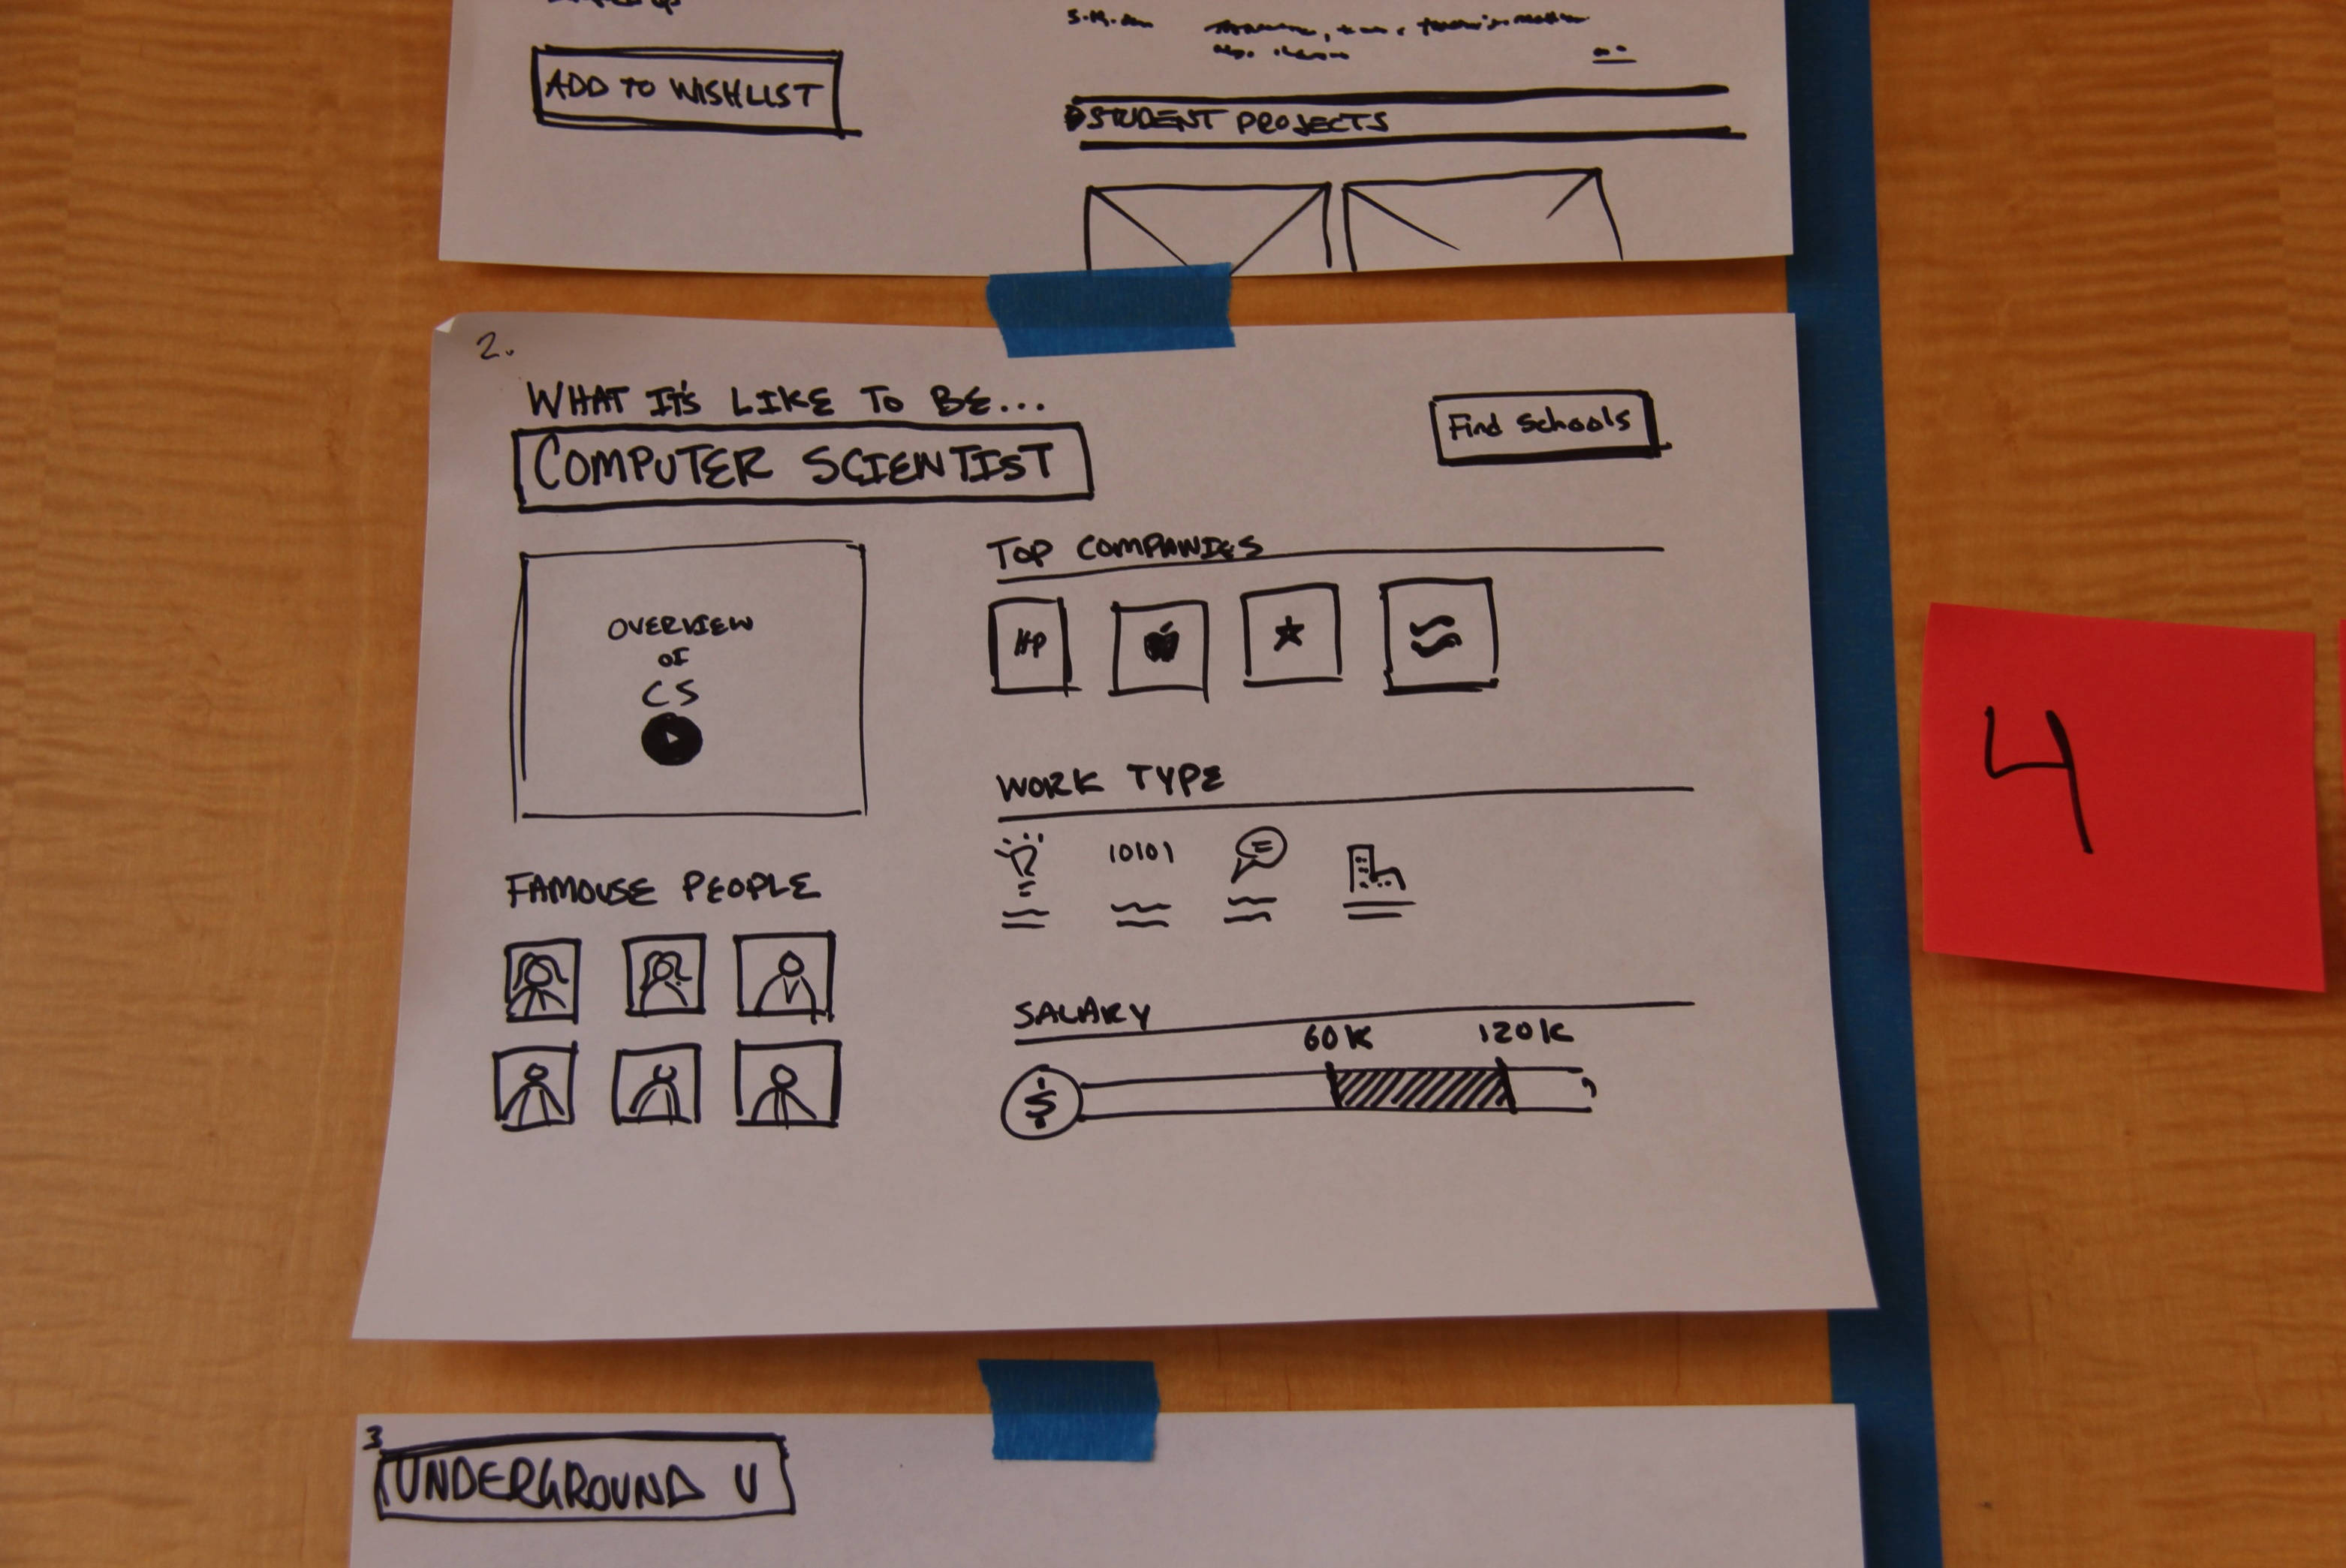 ADD TO WISHLIST
STUDENT PROJECTS
2.
WHAT IT'S LIKE TO BE...
COMPUTER SCIENTIST
Find Schools
OVERVIEW
OF
CS
FAMOUSE PEOPLE
TOP COMPANIES
HP
WORK TYPE
10101
SALARY
60K 120K
$
4
3
UNDERGROUND U